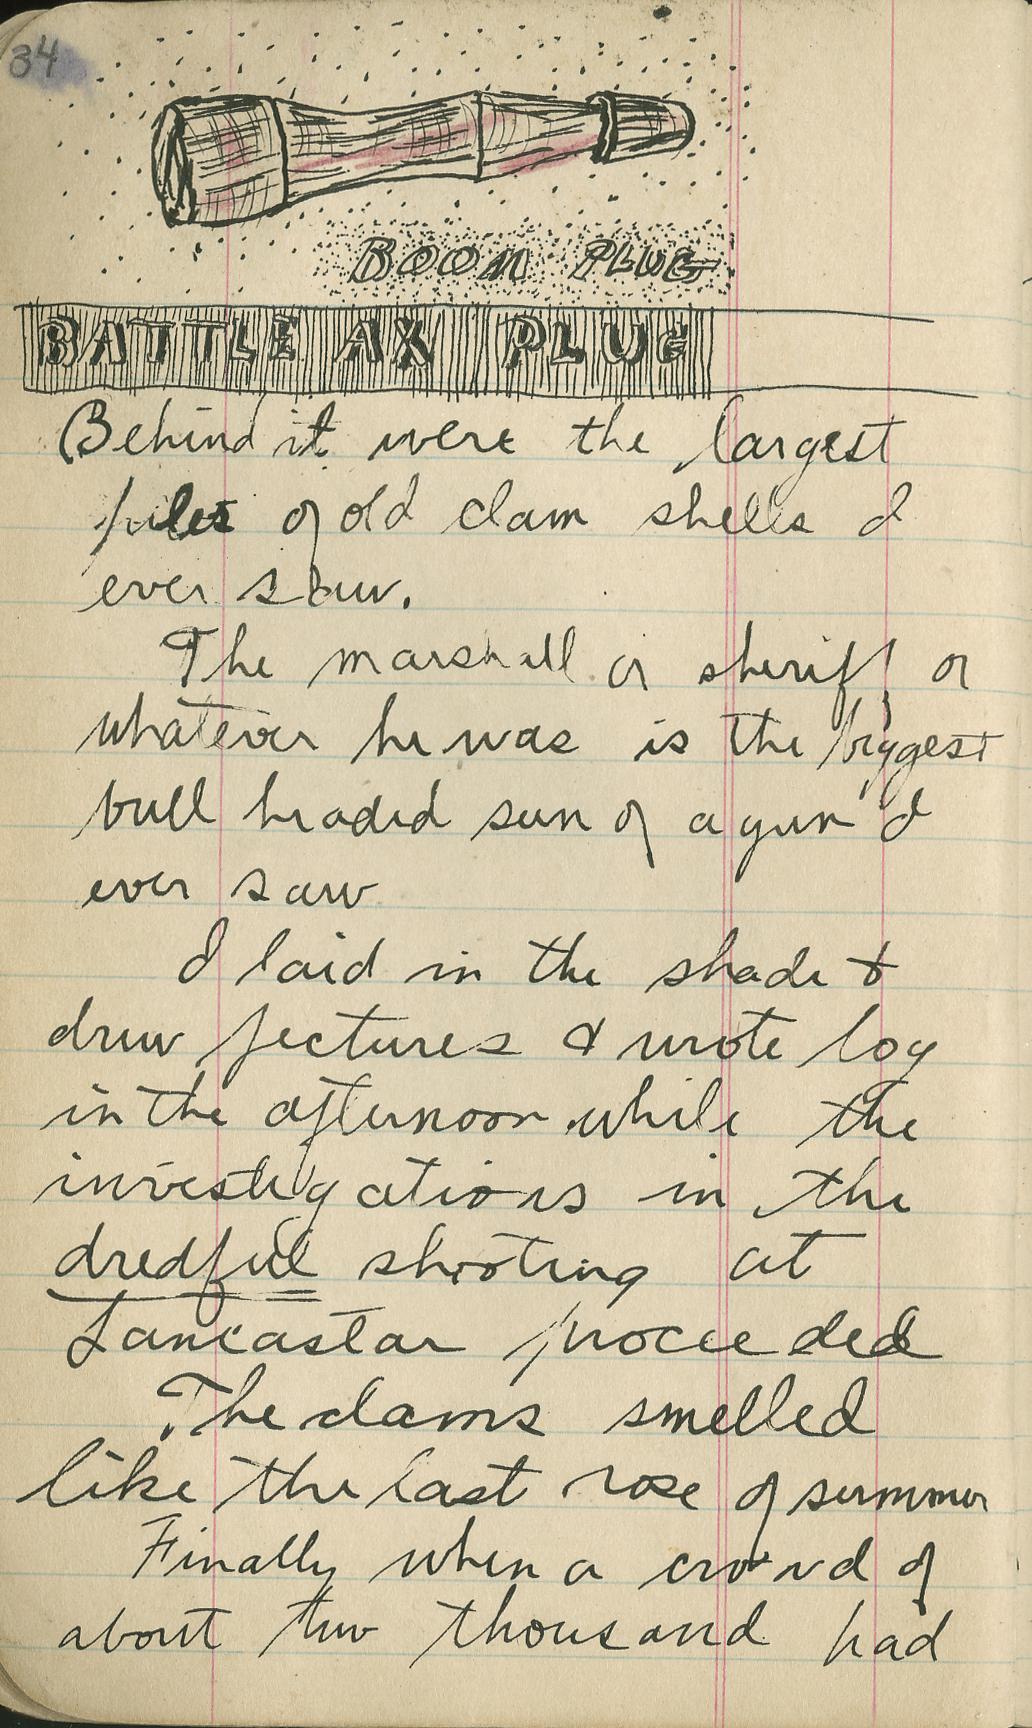 34
BOOM PLUG
BATTLE AX PLUG
Behind it were the largest
piles of old clam shells I
ever saw.
The marshall or sheriff or
whatever he was is the biggest
bull headed sun of a gun I
ever saw
I laid in the shade &
drew pectures & wrote log
in the afternoon while the
investigations in the
dredful shooting at
Lancastar proceeded
The clams smelled
like the last rose of summer
Finally when a crowd of
about two thousand had